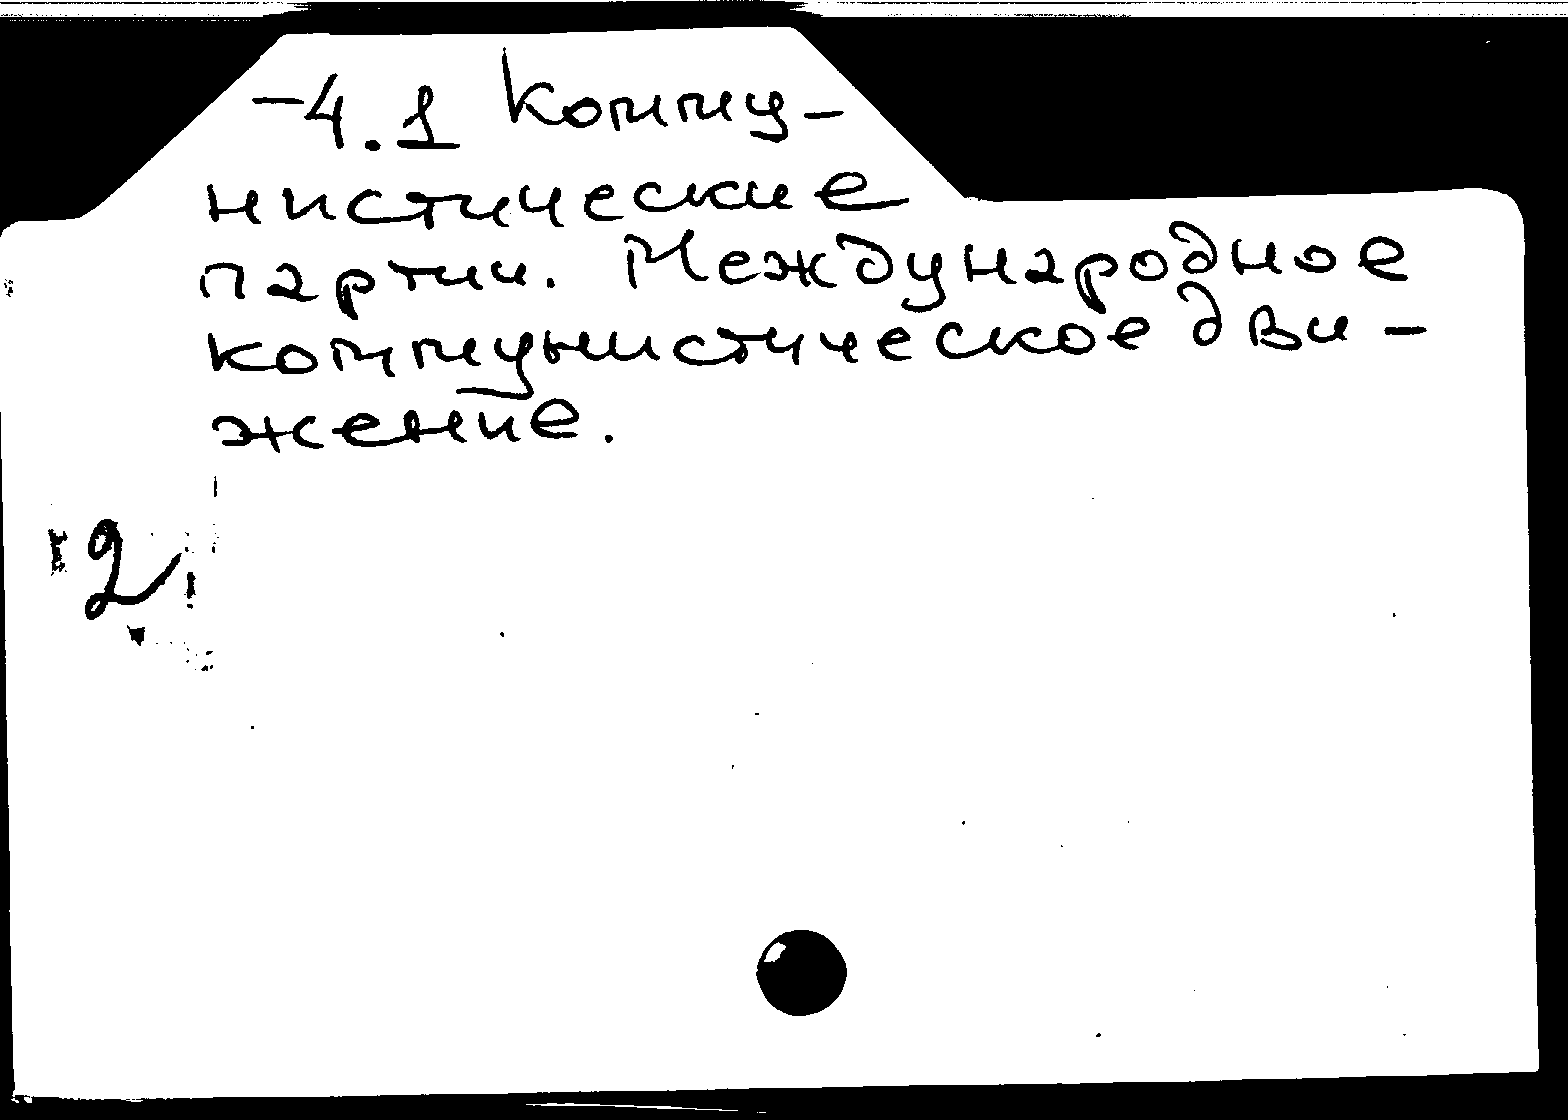 -4.1 Комму-
нистические
партии. Международное
коммунистическое дви-
жение.
2